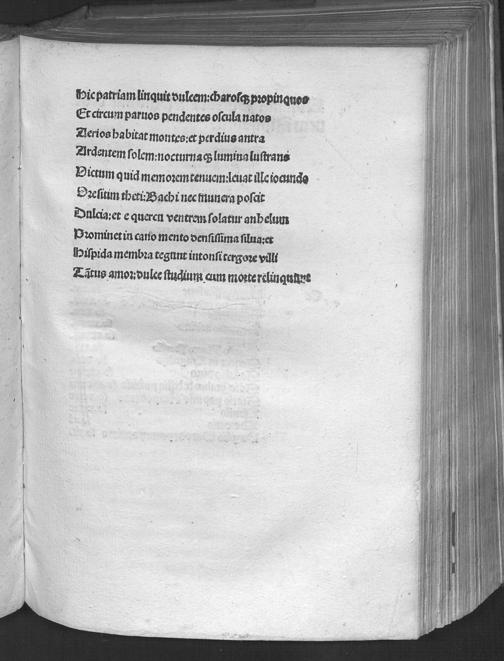 Hic patriam linquit dulcem: charosqꝫ propinquos
Et circum paruos pendentes oscula natos
Aerios habitat montes: et perdius antra
Ardentem solem: nocturnaqꝫ lumina lustrans
Victum quid memorem tenuem: leuat ille iocunde
Oresitim theti: Bachi nec munera poscit
Dulcia: et e queren ventrem solatur anhelum
Prominet in cano mento densissima silua: et
Hispida membra tegunt intonsi tergore villi
Tātus amor: dulce studium cum morte relinquunt